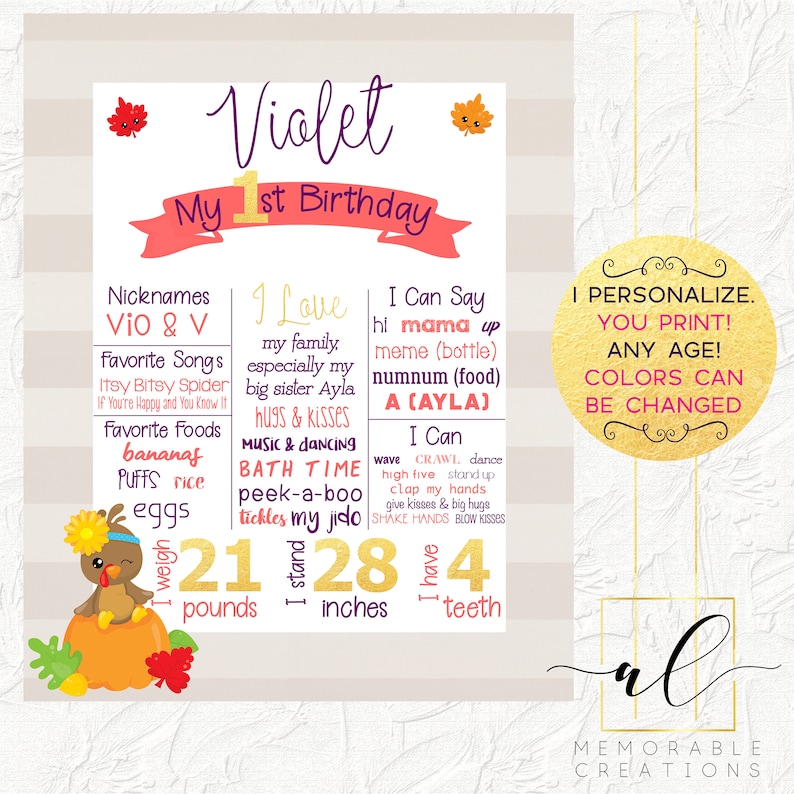 Violet
My 1st Birthday
Nicknames
ViO & V
Favorite Songs
Itsy Bitsy Spider
If You're Happy and You Know It
Favorite Foods
bananas
PUFFS rice
eggs
I Love
my family,
especially my
big sister Ayla
hugs & kisses
MUSIC & DANCING
BATH TIME
peek-a-boo
tickles my jido
I Can Say
hi mama up
meme (bottle)
numnum (food)
A (AYLA)
I Can
wave CRAWL dance
high five stand up
clap my hands
give kisses & big hugs
SHAKE HANDS BLOW KISSES
I weigh 21 pounds
I stand 28 inches
I have 4 teeth
I PERSONALIZE.
YOU PRINT!
ANY AGE!
COLORS CAN
BE CHANGED
al
MEMORABLE
CREATIONS